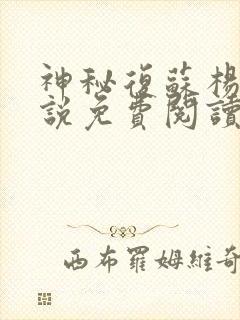 神秘復蘇楊
說免費閱讀
西布羅姆維奇